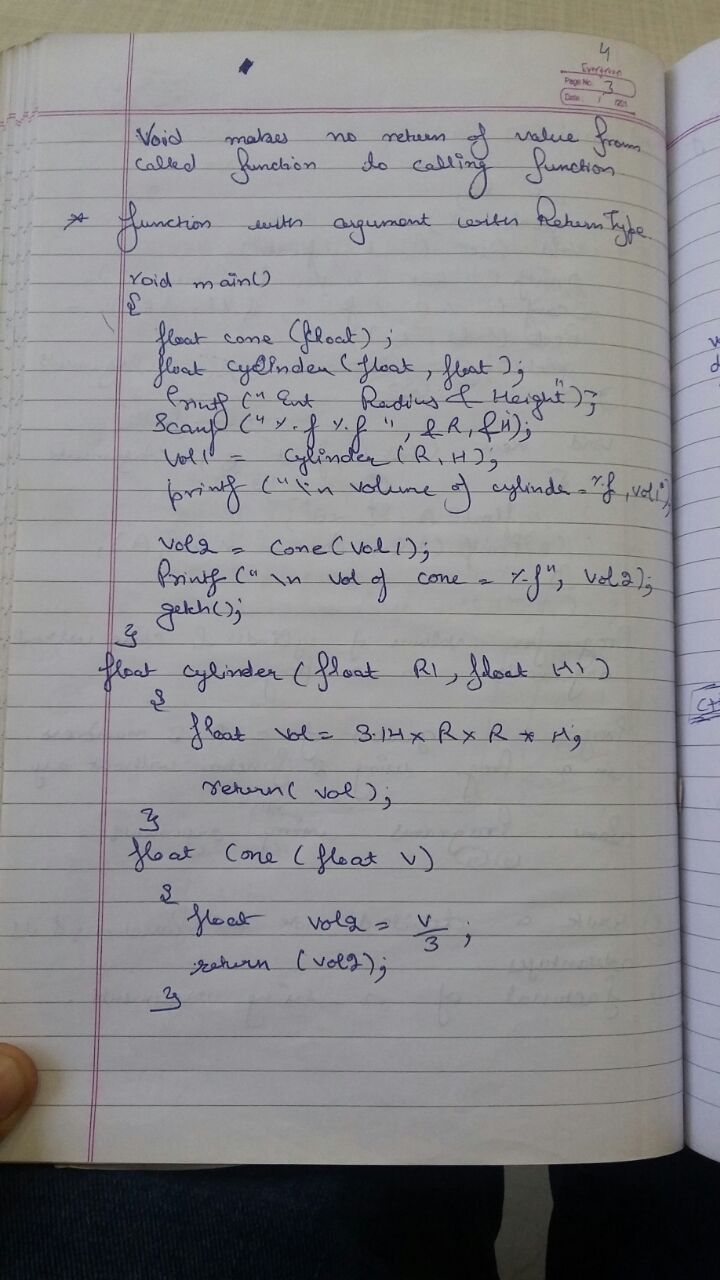 4
Evergreen
Page No. 3
Date: / /201
Void makes no return of value from
called function to calling function
* function with argument with Return Type
void main()
{
float cone (float);
float cylinder (float, float);
Printf (" Ent Radius & Height");
Scanf (" %f %f ", &R, &H);
Vol1 = cylinder (R, H);
printf ("\n volume of cylinder = %f, vol1");
vol2 = cone(vol1);
Printf (" \n vol of cone = %f", vol2);
getch();
}
float cylinder (float R1, float H1)
{
float vol = 3.14 x R x R * H;
return( vol );
}
float Cone (float v)
{
float vol2 = v/3;
return (vol2);
}